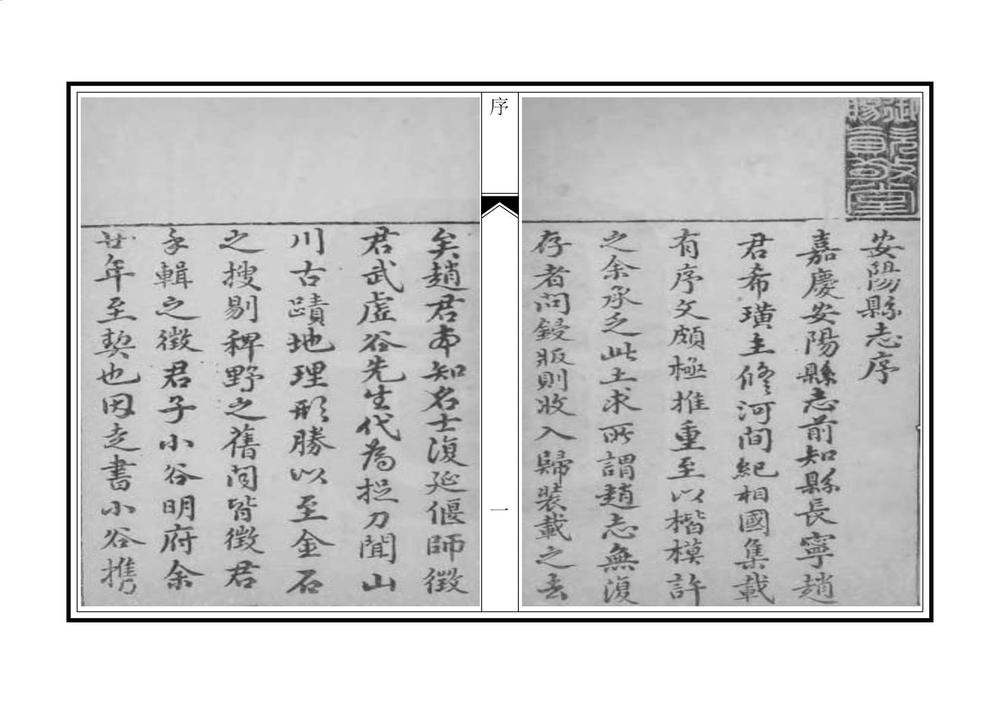 安陽縣志序
嘉慶安陽縣志前知縣長寧趙
君希璜主修河間紀相國集載
有序文頗極推重至以楷模許
之余承乏此土求所謂趙志無復
存者問鋟版則收入歸裝載之去
序
一
矣趙君本知名士復延偃師徵
君武虛谷先生代為捉刀聞山
川古蹟地理形勝以至金石
之搜剔稗野之舊聞皆徵君
手輯之徵君子小谷明府余
廿年至契也因走書小谷携